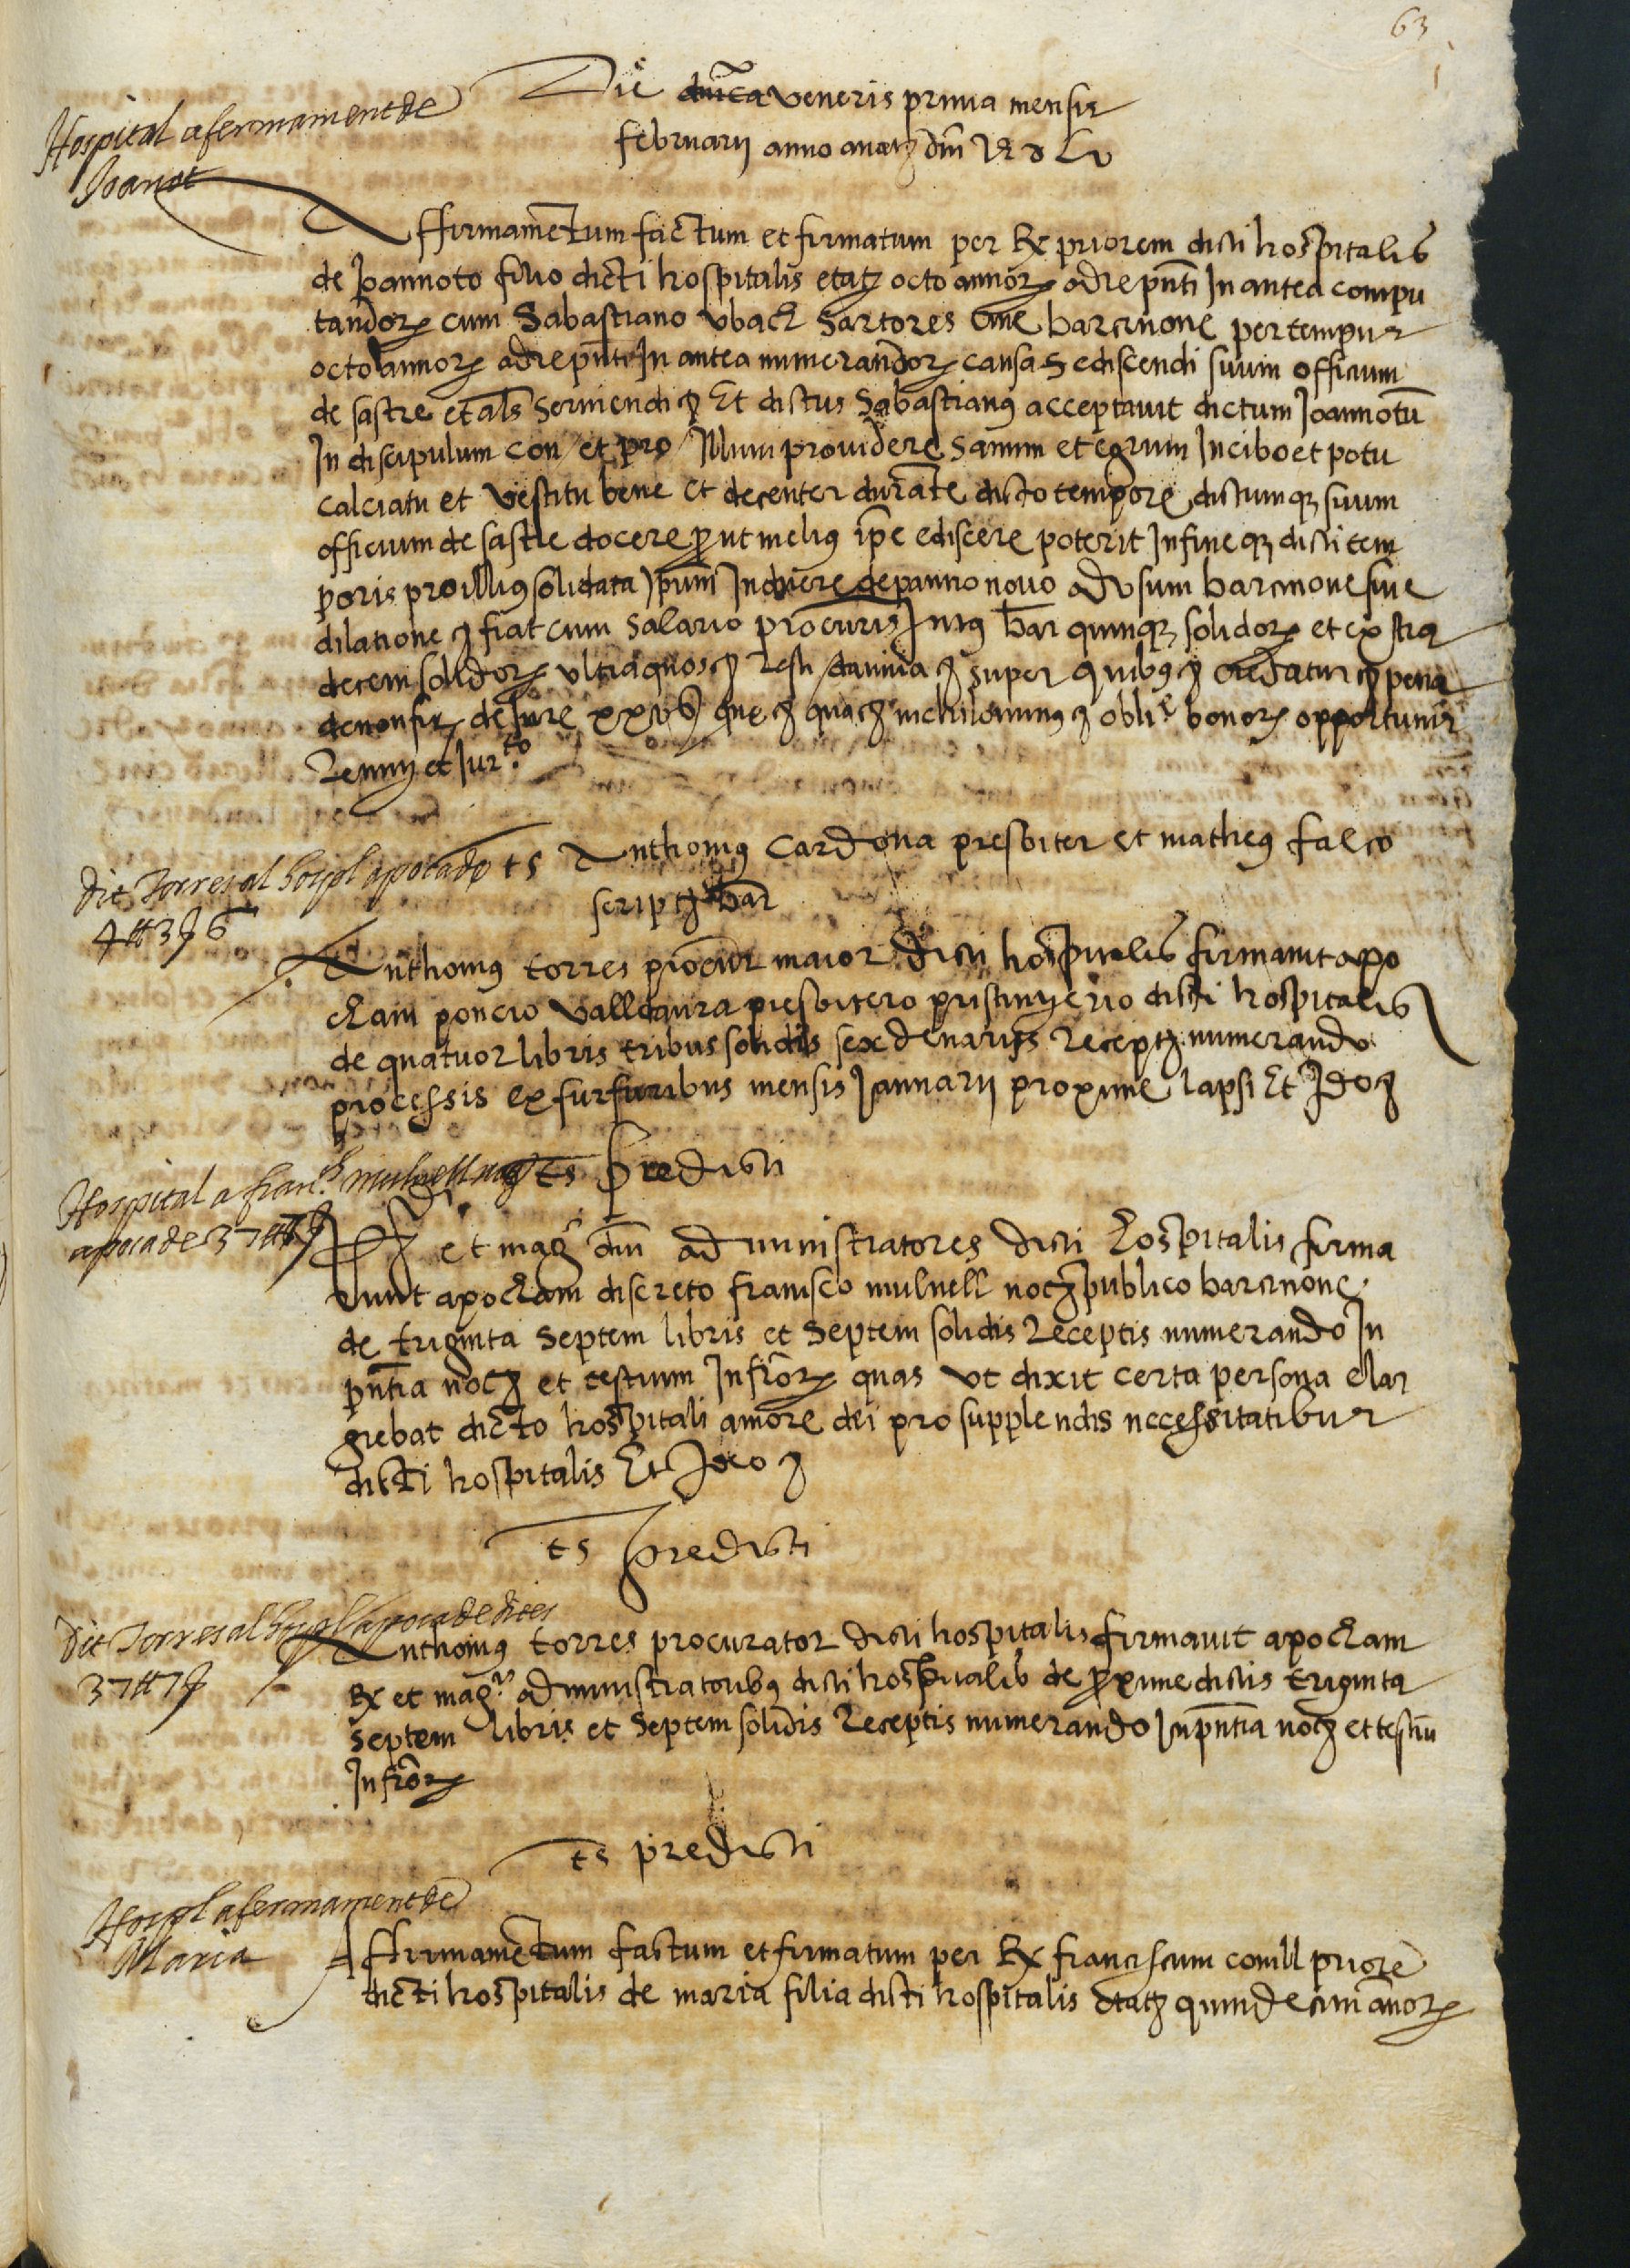 63
Die veneris prima mensis
februarii anno a natz dñi MDLv
Hospital afermament de
Joanot
Affirmamentum factum et firmatum per Rx priorem dicti hospitalis
de Joannoto filio dicti hospitalis etatz octo annorz a die pñti In antea compu
tandorz cum Sabastiano vbach Sartores Ciue barcinone per tempus
octo annorz a die pñti In antea numerandorz causa ediscendi suum officium
de sastre et als Seruiendi Et dictus Sabastianus acceptauit dictum Joannotũ
In discipulum con et pro Illum prouidere Sanum et egrum In cibo et potu
calciatu et vestitu bene et decenter durãte dicto tempore dictumqz suum
officium de sastre docere prout melius ipe ediscere poterit In fineqz dicti tem
poris pro illius solidata Ipum Induere de panno nouo ad vsum barcinone sine
dilatione fiat cum Salario procuris Intus bar quinqz solidorz et extra
decem solidorz vltra quos Resti damna super quibus credatur pena
de non firz de Jure xxv quez quaz nichilominus obliᵉ bonorz opportunis
Renuy et Jur.to
ts Anthonius Cardona presbiter et matheus falco
scriptz bar
Dit Torres al hospl apoca de
4 ₶ 3 ẜ 6
Anthonius torres procur maior dicti hospitalis firmauit apo
cham poncio valldaura presbitero pristinyerio dicti hospitalis
de quatuor libris tribus solidis sex denariis Receptz numerando
processis ex furfuribus mensis Januarii proxime lapsi Et Ideoz
ts predicti
Hospital a franch mulnell
apoca de 37 ₶ 7 ẜ
Rx et magᶜⁱ dñi administratores dicti hospitalis firma
runt apocham discreto francisco mulnell notz publico barcinone
de triginta Septem libris et Septem solidis Receptis numerando In
pñtia notz et testium Infrõrz quas vt dixit certa persona elar
giebat dicto hospitali amore dei pro supplendis necessitatibus
dicti hospitalis Et Ideoz
ts predicti
Dit Torres al hospl apoca de dites
37 ₶ 7 ẜ
Anthonius torres procurator dicti hospitalis firmauit apocham
Rx et magᶜⁱˢ administratoribus dicti hospitalis de proxime dictis triginta
Septem libris et Septem solidis Receptis numerando In pñtia notz et testiũ
Infrõrz
ts predicti
Hospl afermament de
Maria
Affirmamentum factum et firmatum per Rx franciscum conill priorẽ
dicti hospitalis de maria filia dicti hospitalis etatz quindecim ãnorz